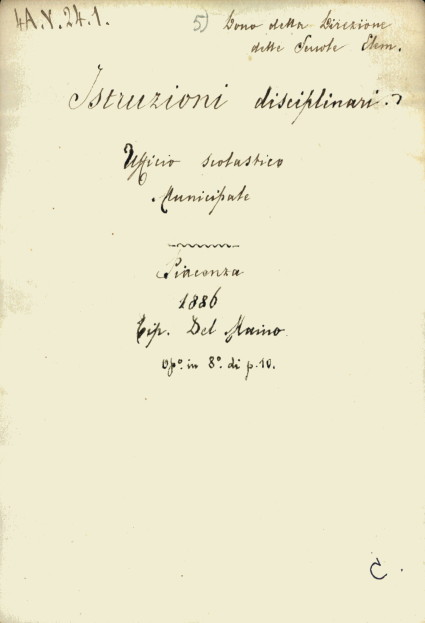 4A.V.24.1.
5) Dono della Direzione
delle Scuole Elem.
Istruzioni disciplinari.
Ufficio scolastico
Municipale
Piacenza
1886
Tip. Del Maino.
Opo. in 8o. di p. 10.
C.